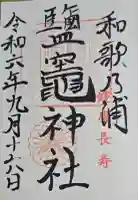 和歌乃浦
鹽竈神社
令和六年九月十六日